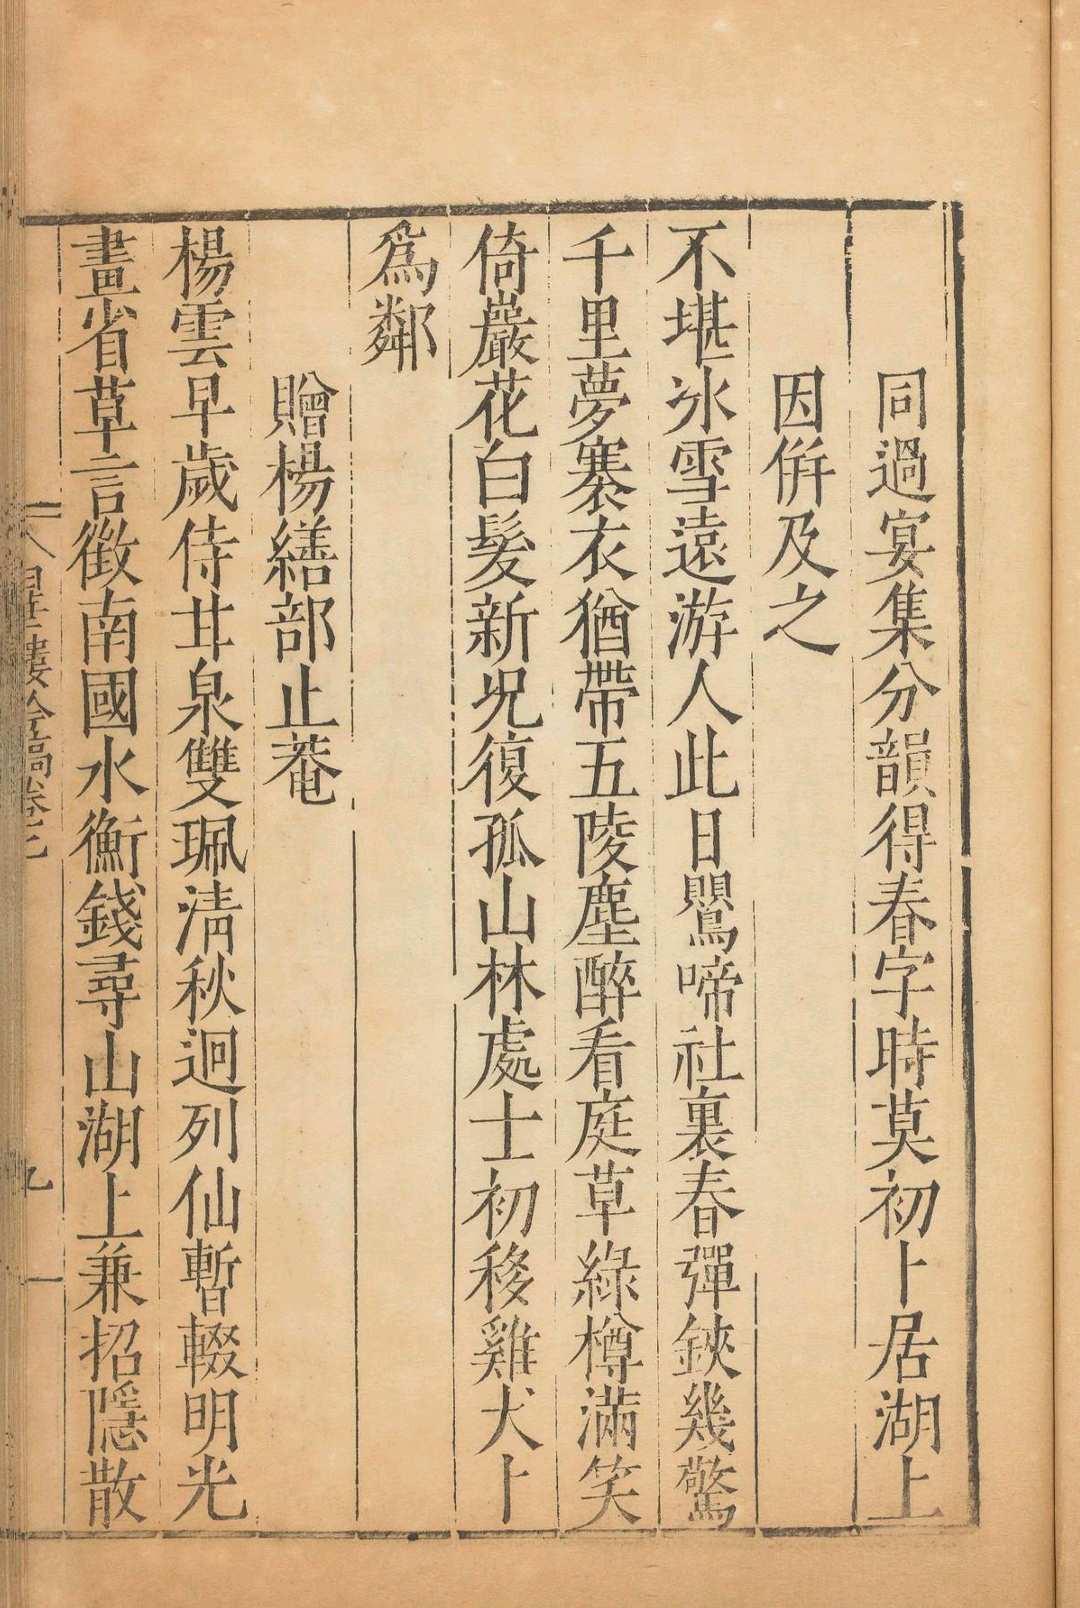 同過宴集分韻得春字時莫初卜居湖上
因倂及之
不堪冰雪遠游人此日鸎啼社裏春彈鋏幾驚
千里夢褰衣猶帶五陵塵醉看庭草綠樽滿笑
倚巖花白髮新況復孤山林處士初移雞犬卜
爲鄰
贈楊繕部止菴
楊雲早歲侍甘泉雙珮淸秋迥列仙暫輟明光
畫省草言徵南國水衡錢尋山湖上兼招隱散
卷之
九